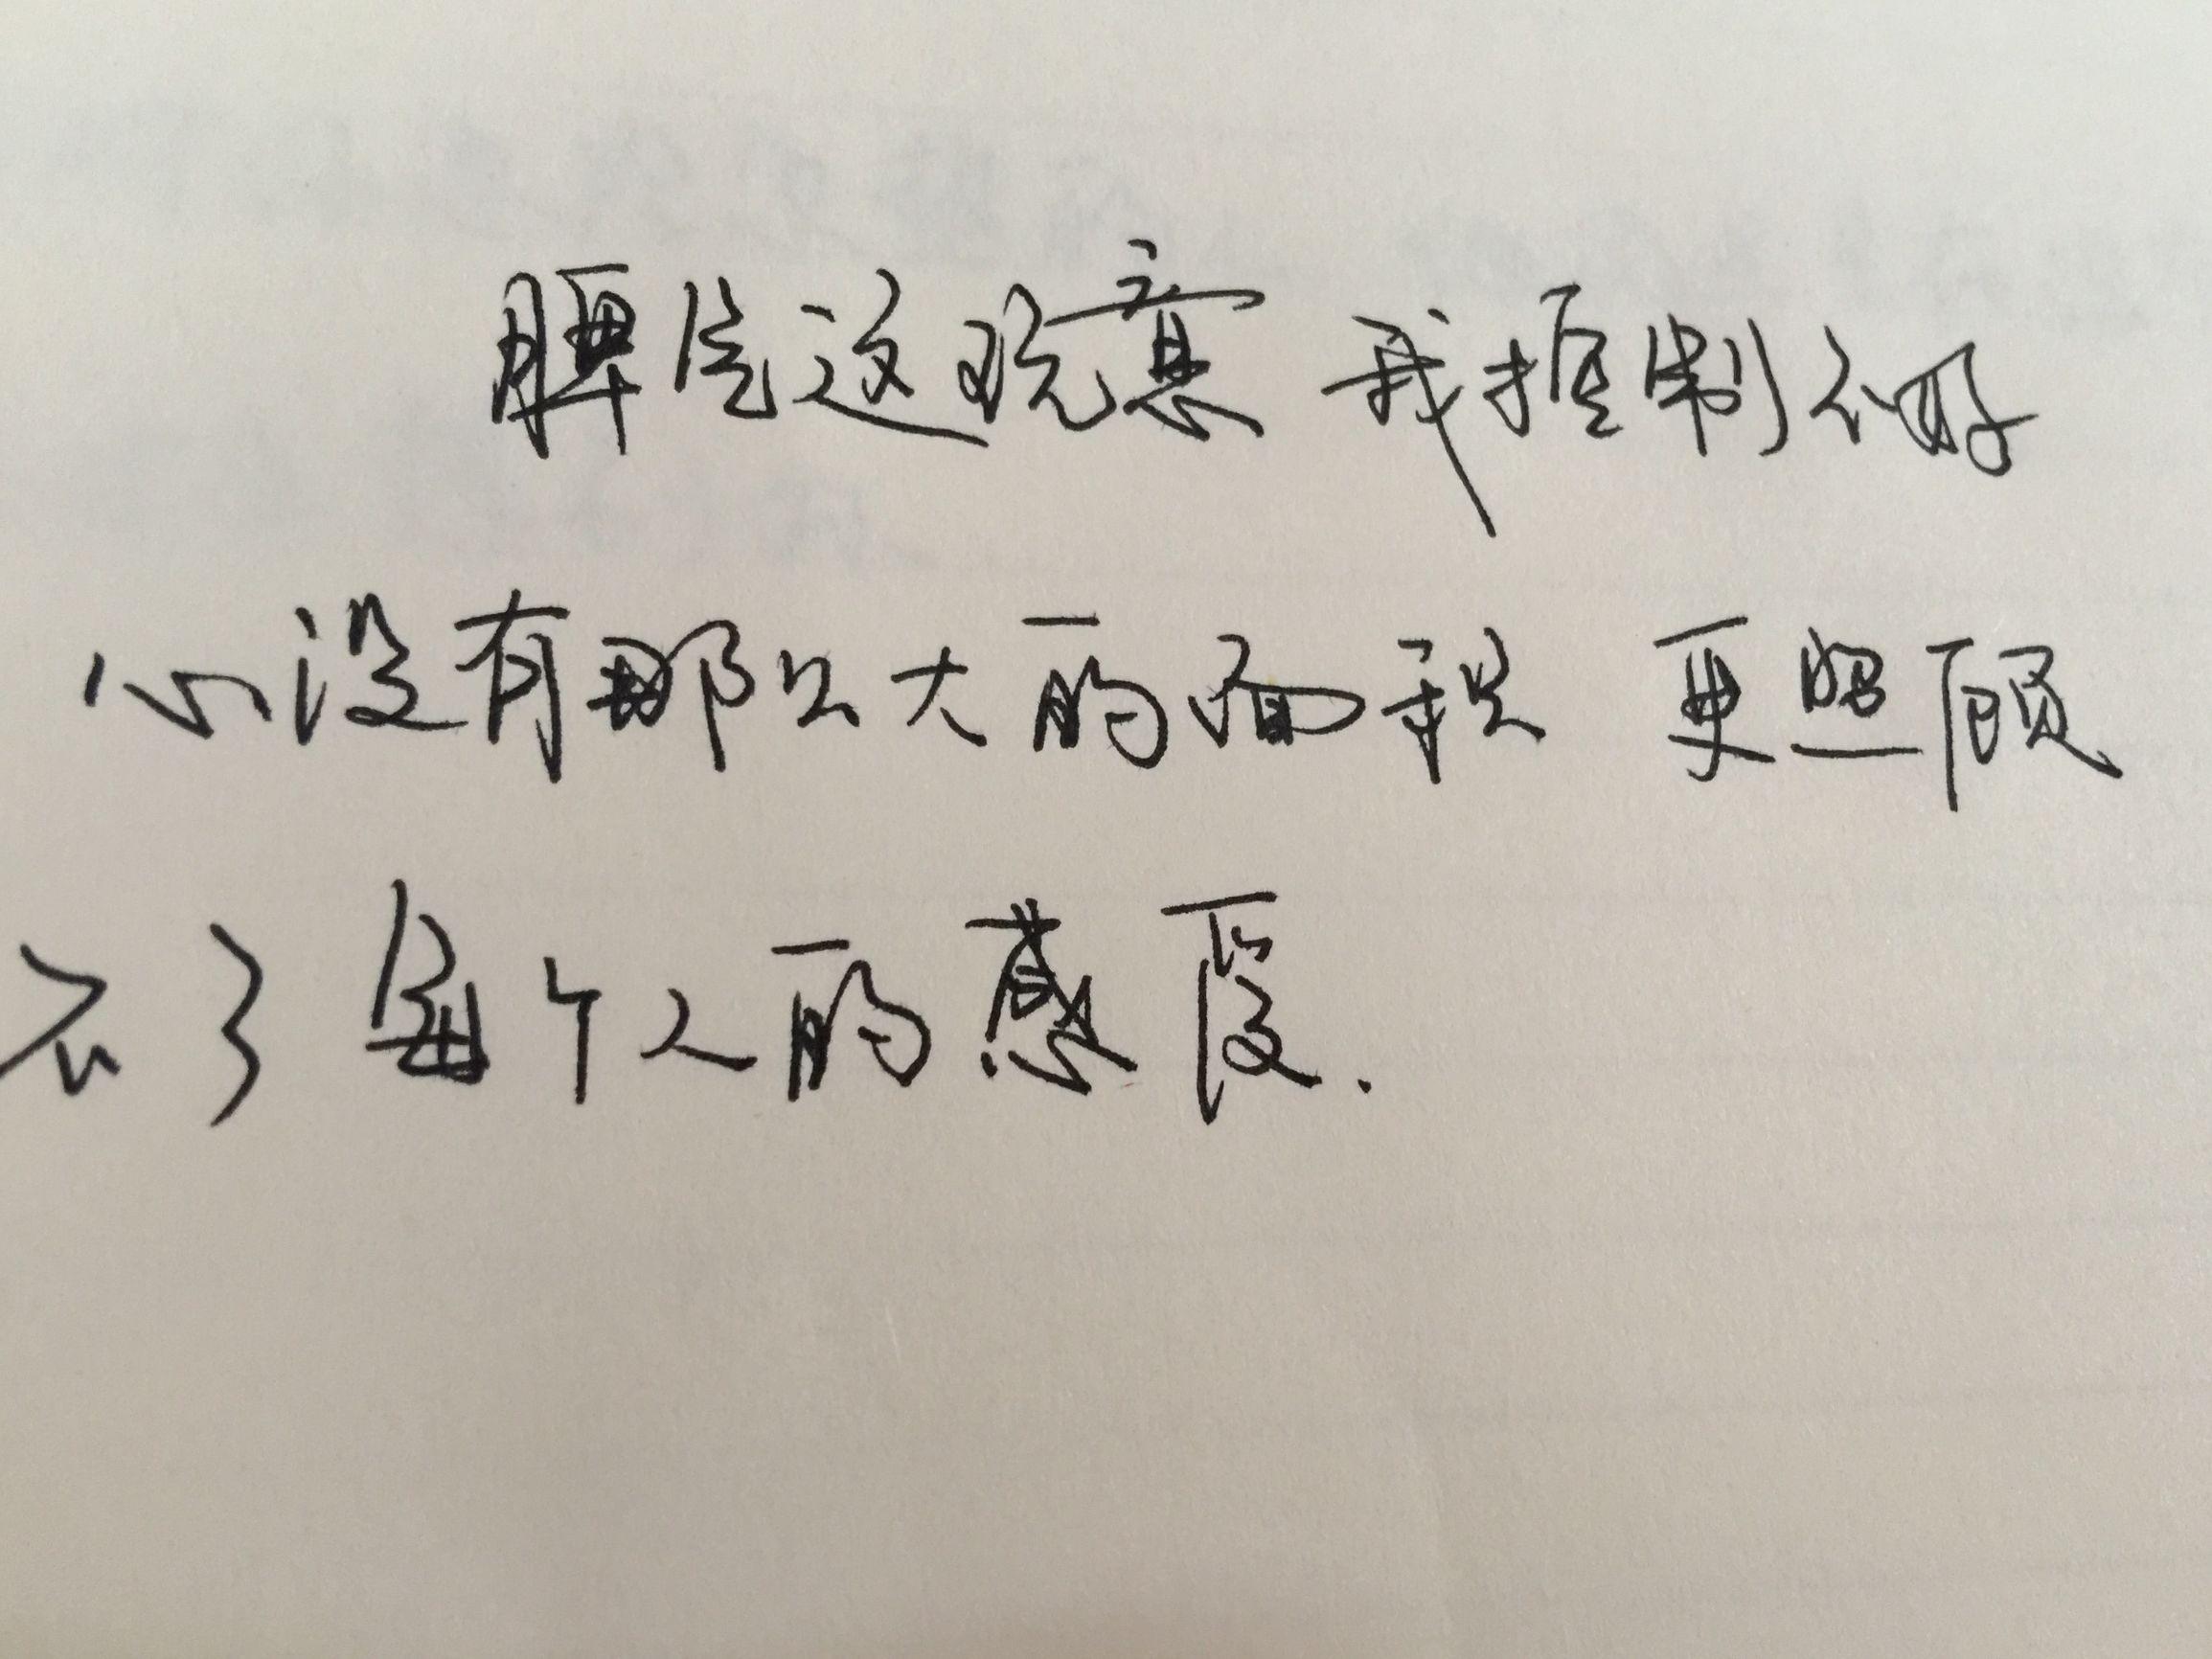 脾气这玩意 我控制不好
心没有那么大的面积 更照顾
不了每个人的感受.